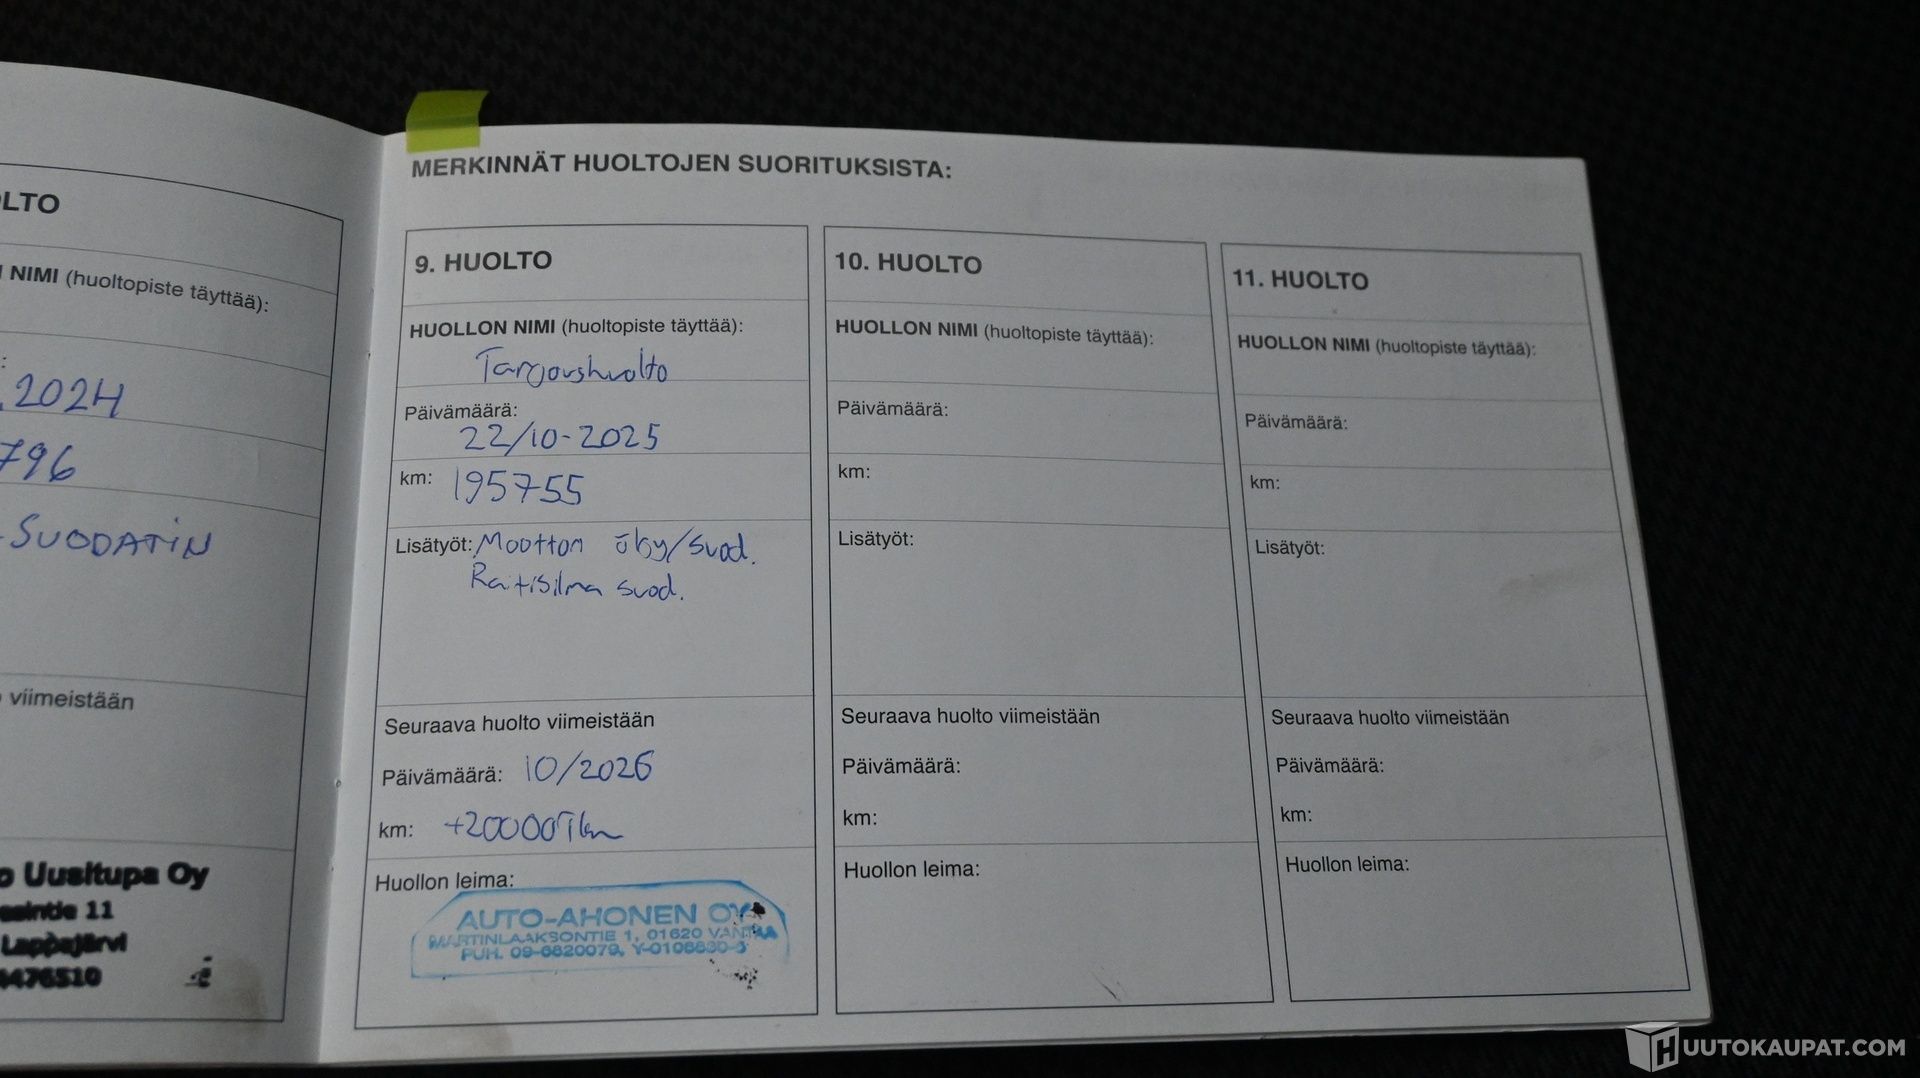 LTO
NIMI (huoltopiste täyttää):
.2024
796
-SUODATIN
viimeistään
Uusitupa Oy
11
Lappajärvi
476510
MERKINNÄT HUOLTOJEN SUORITUKSISTA:
9. HUOLTO
HUOLLON NIMI (huoltopiste täyttää):
Tarjoushuolto
Päivämäärä:
22/10-2025
km: 195755
Lisätyöt: Moottori öljy/suod.
Raitisilma suod.
Seuraava huolto viimeistään
Päivämäärä: 10/2026
km: +20000Tkm
Huollon leima:
AUTO-AHONEN OY
MARTINLAAKSONTIE 1, 01620 VANTAA
PUH. 09-6820079,
10. HUOLTO
HUOLLON NIMI (huoltopiste täyttää):
Päivämäärä:
km:
Lisätyöt:
Seuraava huolto viimeistään
Päivämäärä:
km:
Huollon leima:
11. HUOLTO
HUOLLON NIMI (huoltopiste täyttää):
Päivämäärä:
km:
Lisätyöt:
Seuraava huolto viimeistään
Päivämäärä:
km:
Huollon leima:
HUUTOKAUPAT.COM